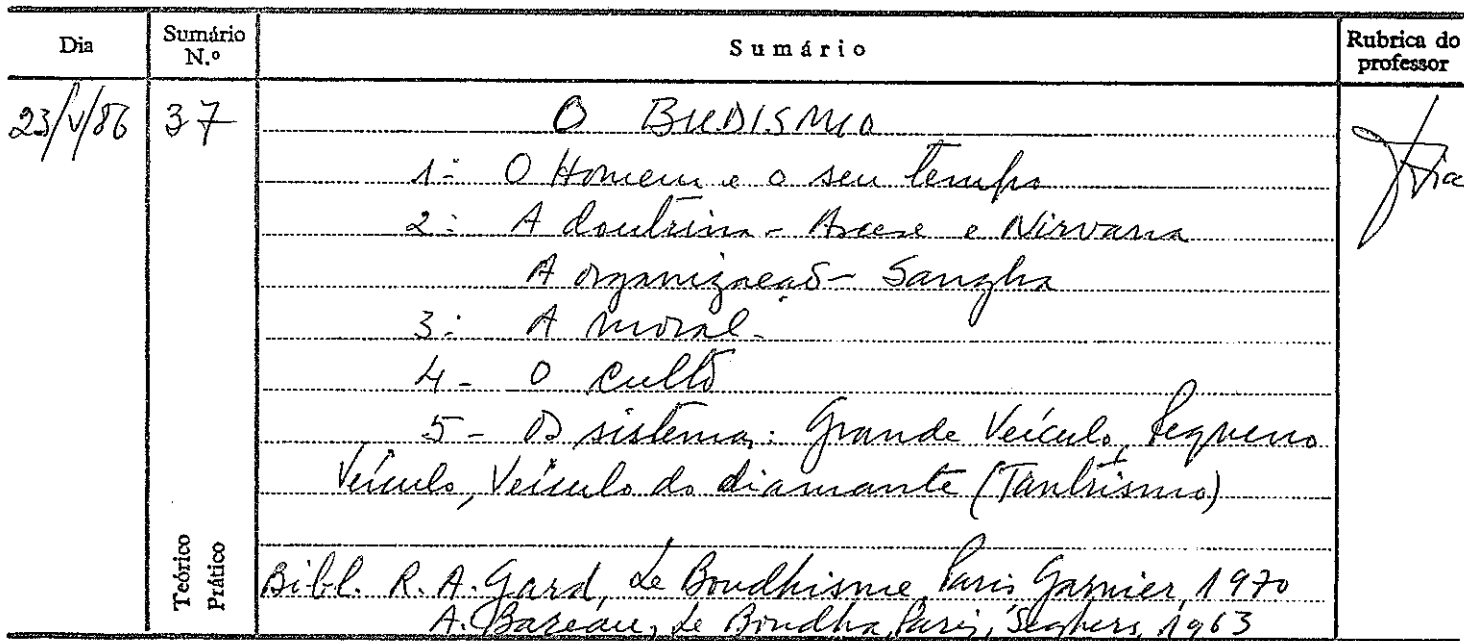 Dia Sumário N.º Sumário Rubrica do professor
23/V/86 37 O BUDISMO
1- O Homem e o seu tempo
2- A doutrina - Ascese e Nirvana
A organização - Sangha
3- A moral-
4- O culto
5- Os sistemas: Grande Veículo, Pequeno
Veículo, Veículo do diamante (Tantrismo)
Teórico
Prático
Bibl. R. A. Gard, Le Boudhisme, Paris, Garnier, 1970
A. Bareau, Le Boudha, Paris, Seghers, 1963